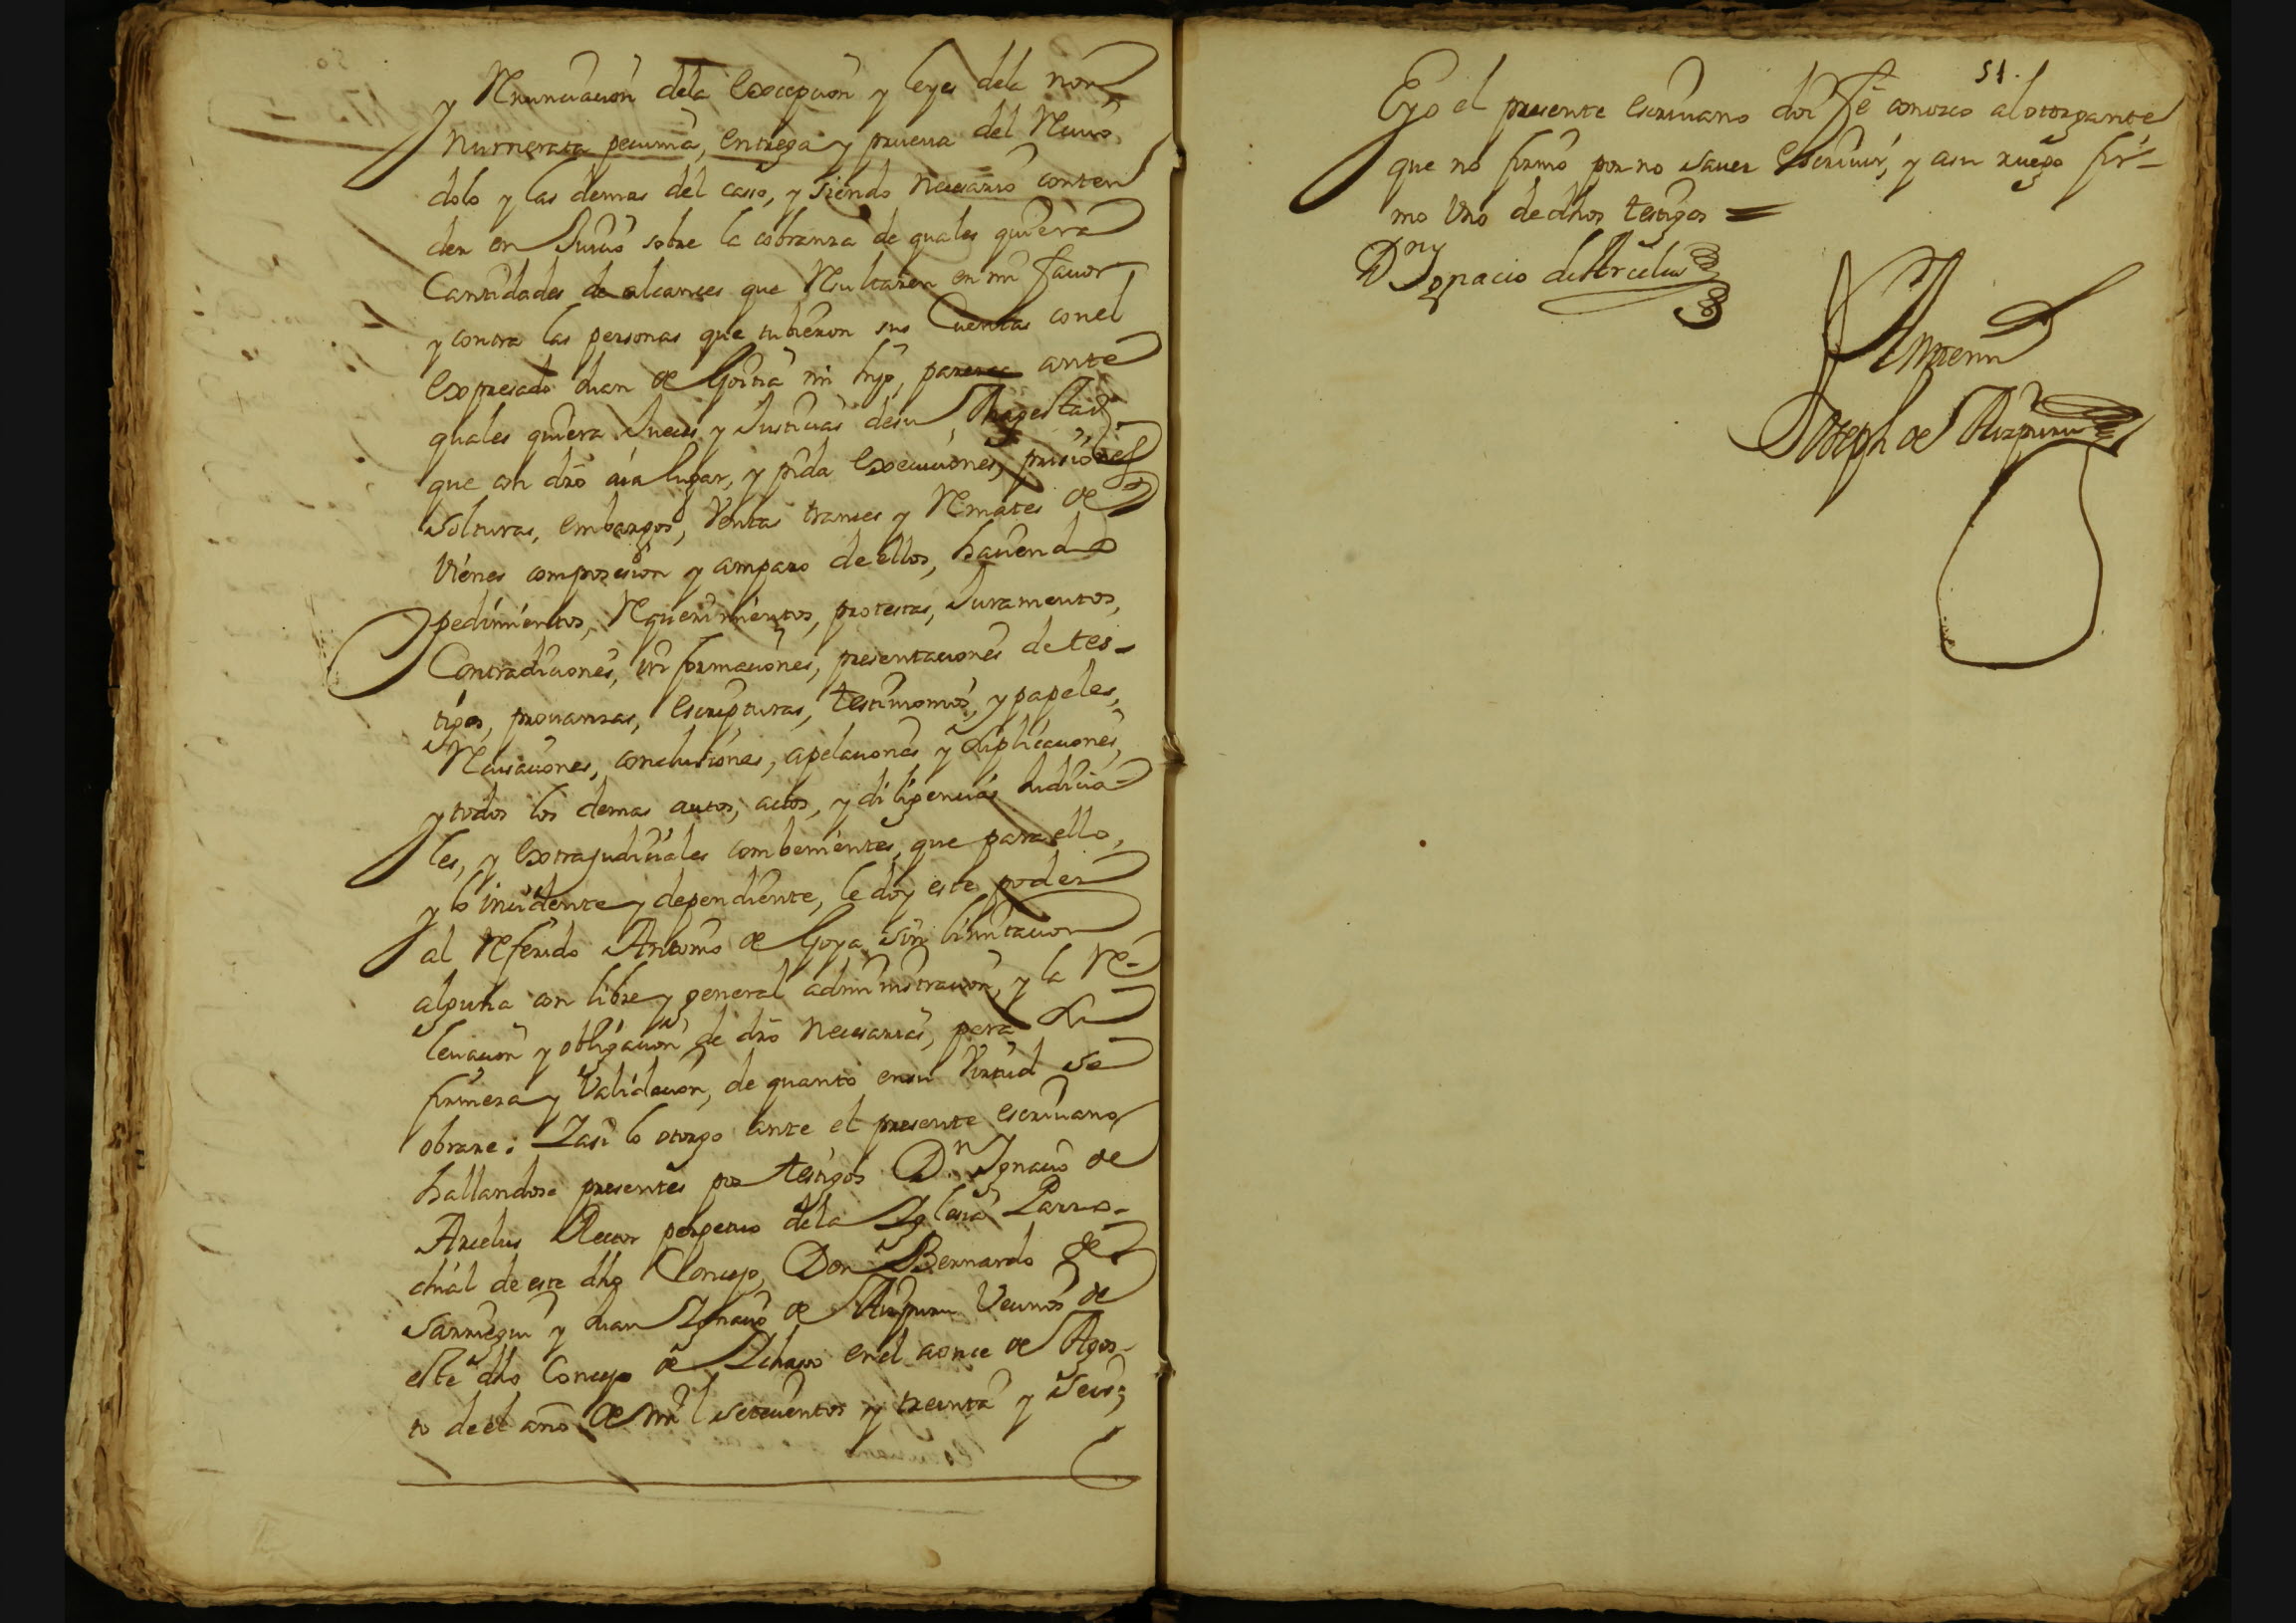 y Renunciacion dela Excepcion y leyes dela non
numerata pecunia, entrega y prueua del Reciuo,
dolo y las demas del caso, y siendo necesario conten
der en Juicio sobre la cobranza de quales quiera
Cantidades de alcances que Resultaren en mi fauor
y contra las personas que tubieron sus Cuentas conel
expresado Juan de Goiria mi hijo, paresca ante
quales quiera Jueces y Justicias desu Magestad
que con dro aia lugar, y pida execuciones, prisiones
solturas, embargos, Ventas trances y Remates de
Vienes composesion y amparo de ellos, haciendo
pedimientos, Requerimientos, protestas, Juramentos,
Contradiciones, informaciones, presentaciones de tes-
tigos, prouanzas, escripturas, testimonios, y papeles,
Recusaciones, conclusiones, apelaciones y suplicaciones,
y todos los demas autos, actos, y diligencias Judicia-
les, y extrajudiciales combenientes, que para ello,
y lo incidente y dependiente, le doy este poder
al Referido Antonio de Goya sin limitacion
alguna con libre y general administracion, y la Re-
leuacion y obligacion de dro necesarias, para su
firmeza y Validacion, de quanto ensu Virtud se
obrare: Yasi lo otorgo ante el presente escriuano
hallandose presentes por testigos D.n Ignacio de
Arcelus Rector perpetuo dela Yglesia Parro-
chial de este dho Concejo, Don Bernardo de
Sarriegui y Juan Ygnacio de Aizpuru Vecinos de
este dho Concejo de Ichaso enel aonce de Agos-
to de el año de mil setecientos y treinta y seis;
51.
Eyo el presente escriuano doi fe conozco alotorgante
que no firmo por no sauer escriuir, y asu ruego fir-
mo Uno de dhos testigos =
Dn Ignacio de Arcelus
Antemi
Joseph de Aizpuru